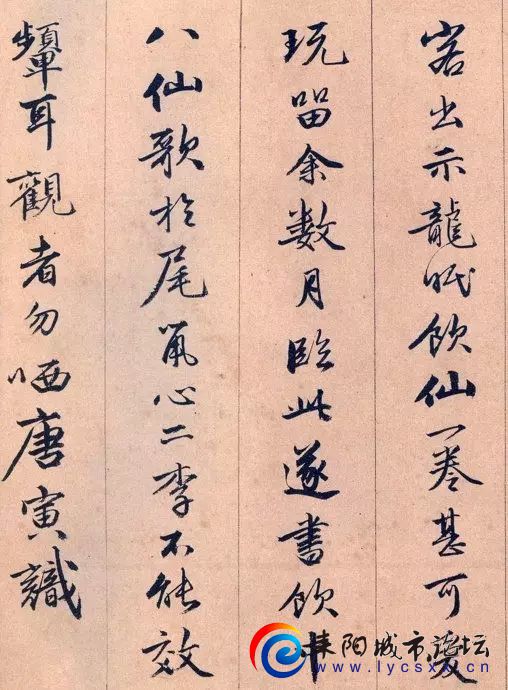 出示龍眠飲仙一卷甚可愛
玩留余数月臨此遂書飲中
八仙歌於尾心二李不能效
顰耳觀者勿哂唐寅識
耒阳城市论坛